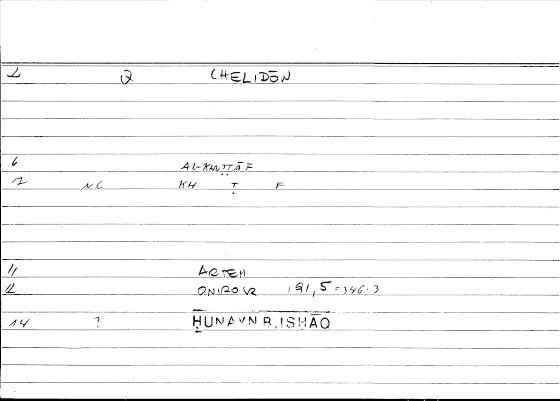 2 Q CHELIDŌN
6 AL-KHUṬṬĀF
7 N.C KH Ṭ F
11 ARTEM
12 ONIROCR 191,5=346.3
14 ? ḤUNAYN B.ISḤĀQ